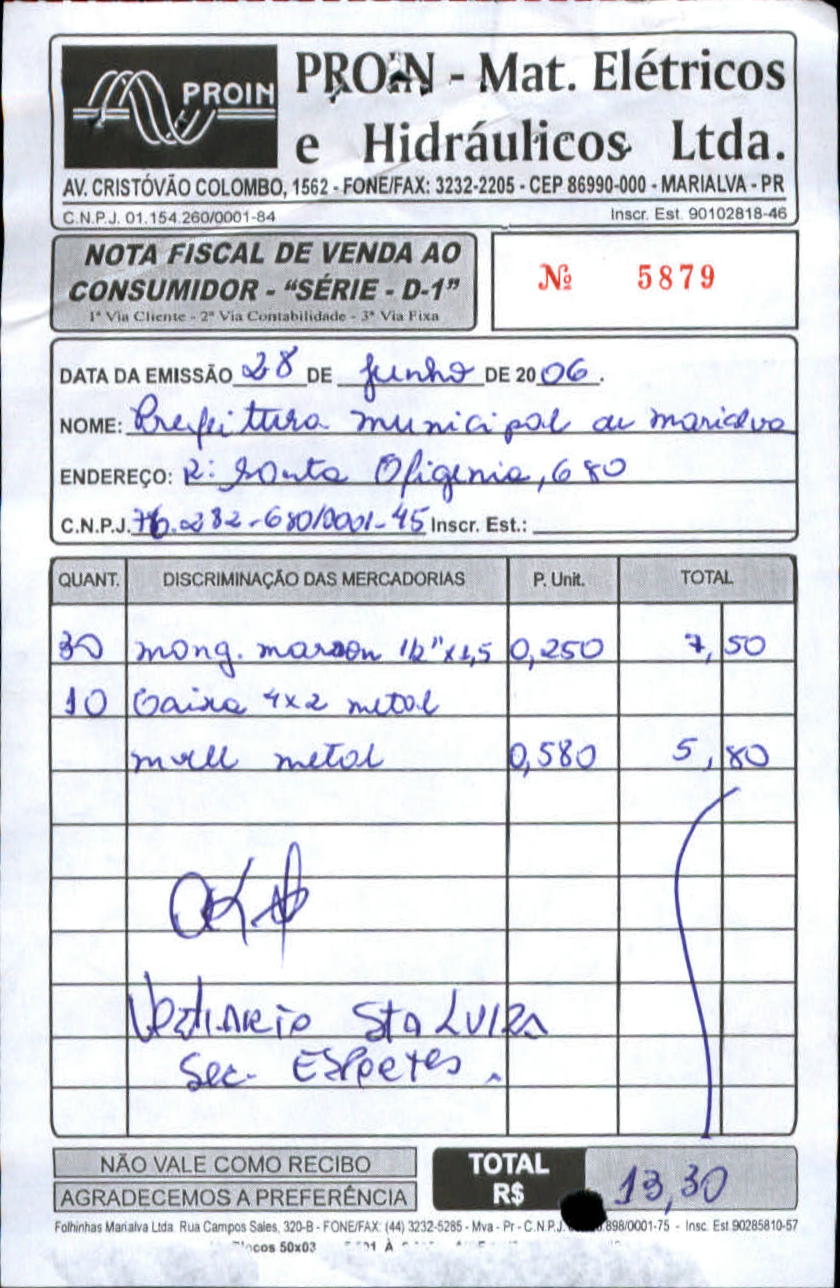 PROIN
PROIN - Mat. Elétricos
e Hidráulicos Ltda.
AV. CRISTÓVÃO COLOMBO, 1562 - FONE/FAX: 3232-2205 - CEP 86990-000 - MARIALVA - PR
C.N.P.J. 01.154.260/0001-84 Inscr. Est. 90102818-46
NOTA FISCAL DE VENDA AO
CONSUMIDOR - "SÉRIE - D-1"
1ª Via Cliente - 2ª Via Contabilidade - 3ª Via Fixa
Nº 5879
DATA DA EMISSÃO 28 DE Junho DE 2006.
NOME: Prefeittura municipal de marialva
ENDEREÇO: R: Santa Ofigenia, 680
C.N.P.J. 76.282-680/0001-45 Inscr. Est.:
QUANT. DISCRIMINAÇÃO DAS MERCADORIAS P. Unit. TOTAL
30 mang. marron 1/2"x1,5 0,250 7,50
10 Caixa 4x2 metal
metal 0,580 5,80
OK
Sta LUIZA
Sec. Esportes
NÃO VALE COMO RECIBO
AGRADECEMOS A PREFERÊNCIA
TOTAL
R$ 13,30
Folhinhas Marialva Ltda. Rua Campos Sales, 320-B - FONE/FAX: (44) 3232-5285 - Mva - Pr - C.N.P.J. 898/0001-75 - Insc. Est 90285810-57
50x03